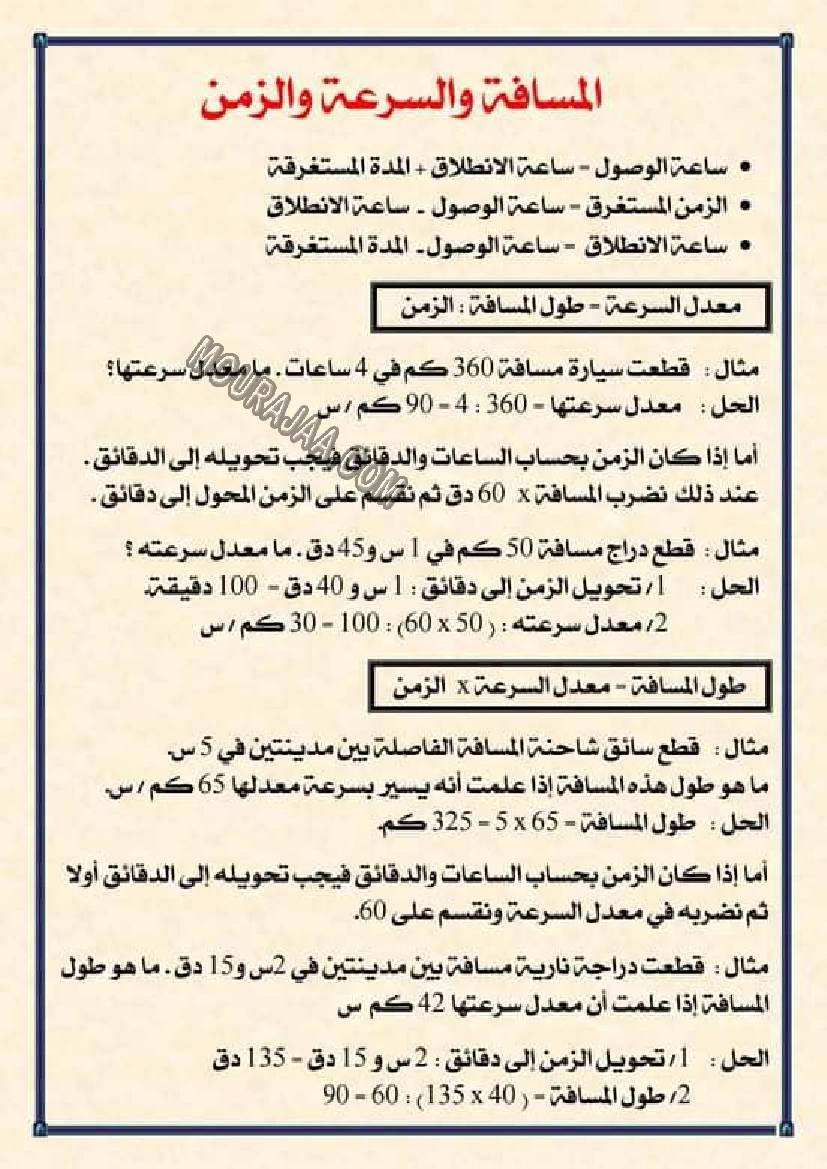 المسافة والسرعة والزمن
• ساعة الوصول = ساعة الانطلاق + المدة المستغرقة
• الزمن المستغرق = ساعة الوصول - ساعة الانطلاق
• ساعة الانطلاق = ساعة الوصول - المدة المستغرقة
معدل السرعة = طول المسافة : الزمن
مثال : قطعت سيارة مسافة 360 كم في 4 ساعات . ما معدل سرعتها؟
الحل : معدل سرعتها = 360 : 4 = 90 كم / س
أما إذا كان الزمن بحساب الساعات والدقائق فيجب تحويله إلى الدقائق .
عند ذلك نضرب المسافة x 60 دق ثم نقسم على الزمن المحول إلى دقائق .
مثال : قطع دراج مسافة 50 كم في 1 س و45 دق . ما معدل سرعته ؟
الحل : 1/ تحويل الزمن إلى دقائق : 1 س و 40 دق = 100 دقيقة.
2/ معدل سرعته : ( 50 x 60) : 100 = 30 كم / س
طول المسافة = معدل السرعة x الزمن
مثال : قطع سائق شاحنة المسافة الفاصلة بين مدينتين في 5 س.
ما هو طول هذه المسافة إذا علمت أنه يسير بسرعة معدلها 65 كم / س.
الحل : طول المسافة = 65 x 5 = 325 كم.
أما إذا كان الزمن بحساب الساعات والدقائق فيجب تحويله إلى الدقائق أولا
ثم نضربه في معدل السرعة ونقسم على 60.
مثال : قطعت دراجة نارية مسافة بين مدينتين في 2س و15 دق . ما هو طول
المسافة إذا علمت أن معدل سرعتها 42 كم س
الحل : 1/ تحويل الزمن إلى دقائق : 2 س و 15 دق = 135 دق
2/ طول المسافة = ( 40 x 135) : 60 = 90
MOURAJAA.COM